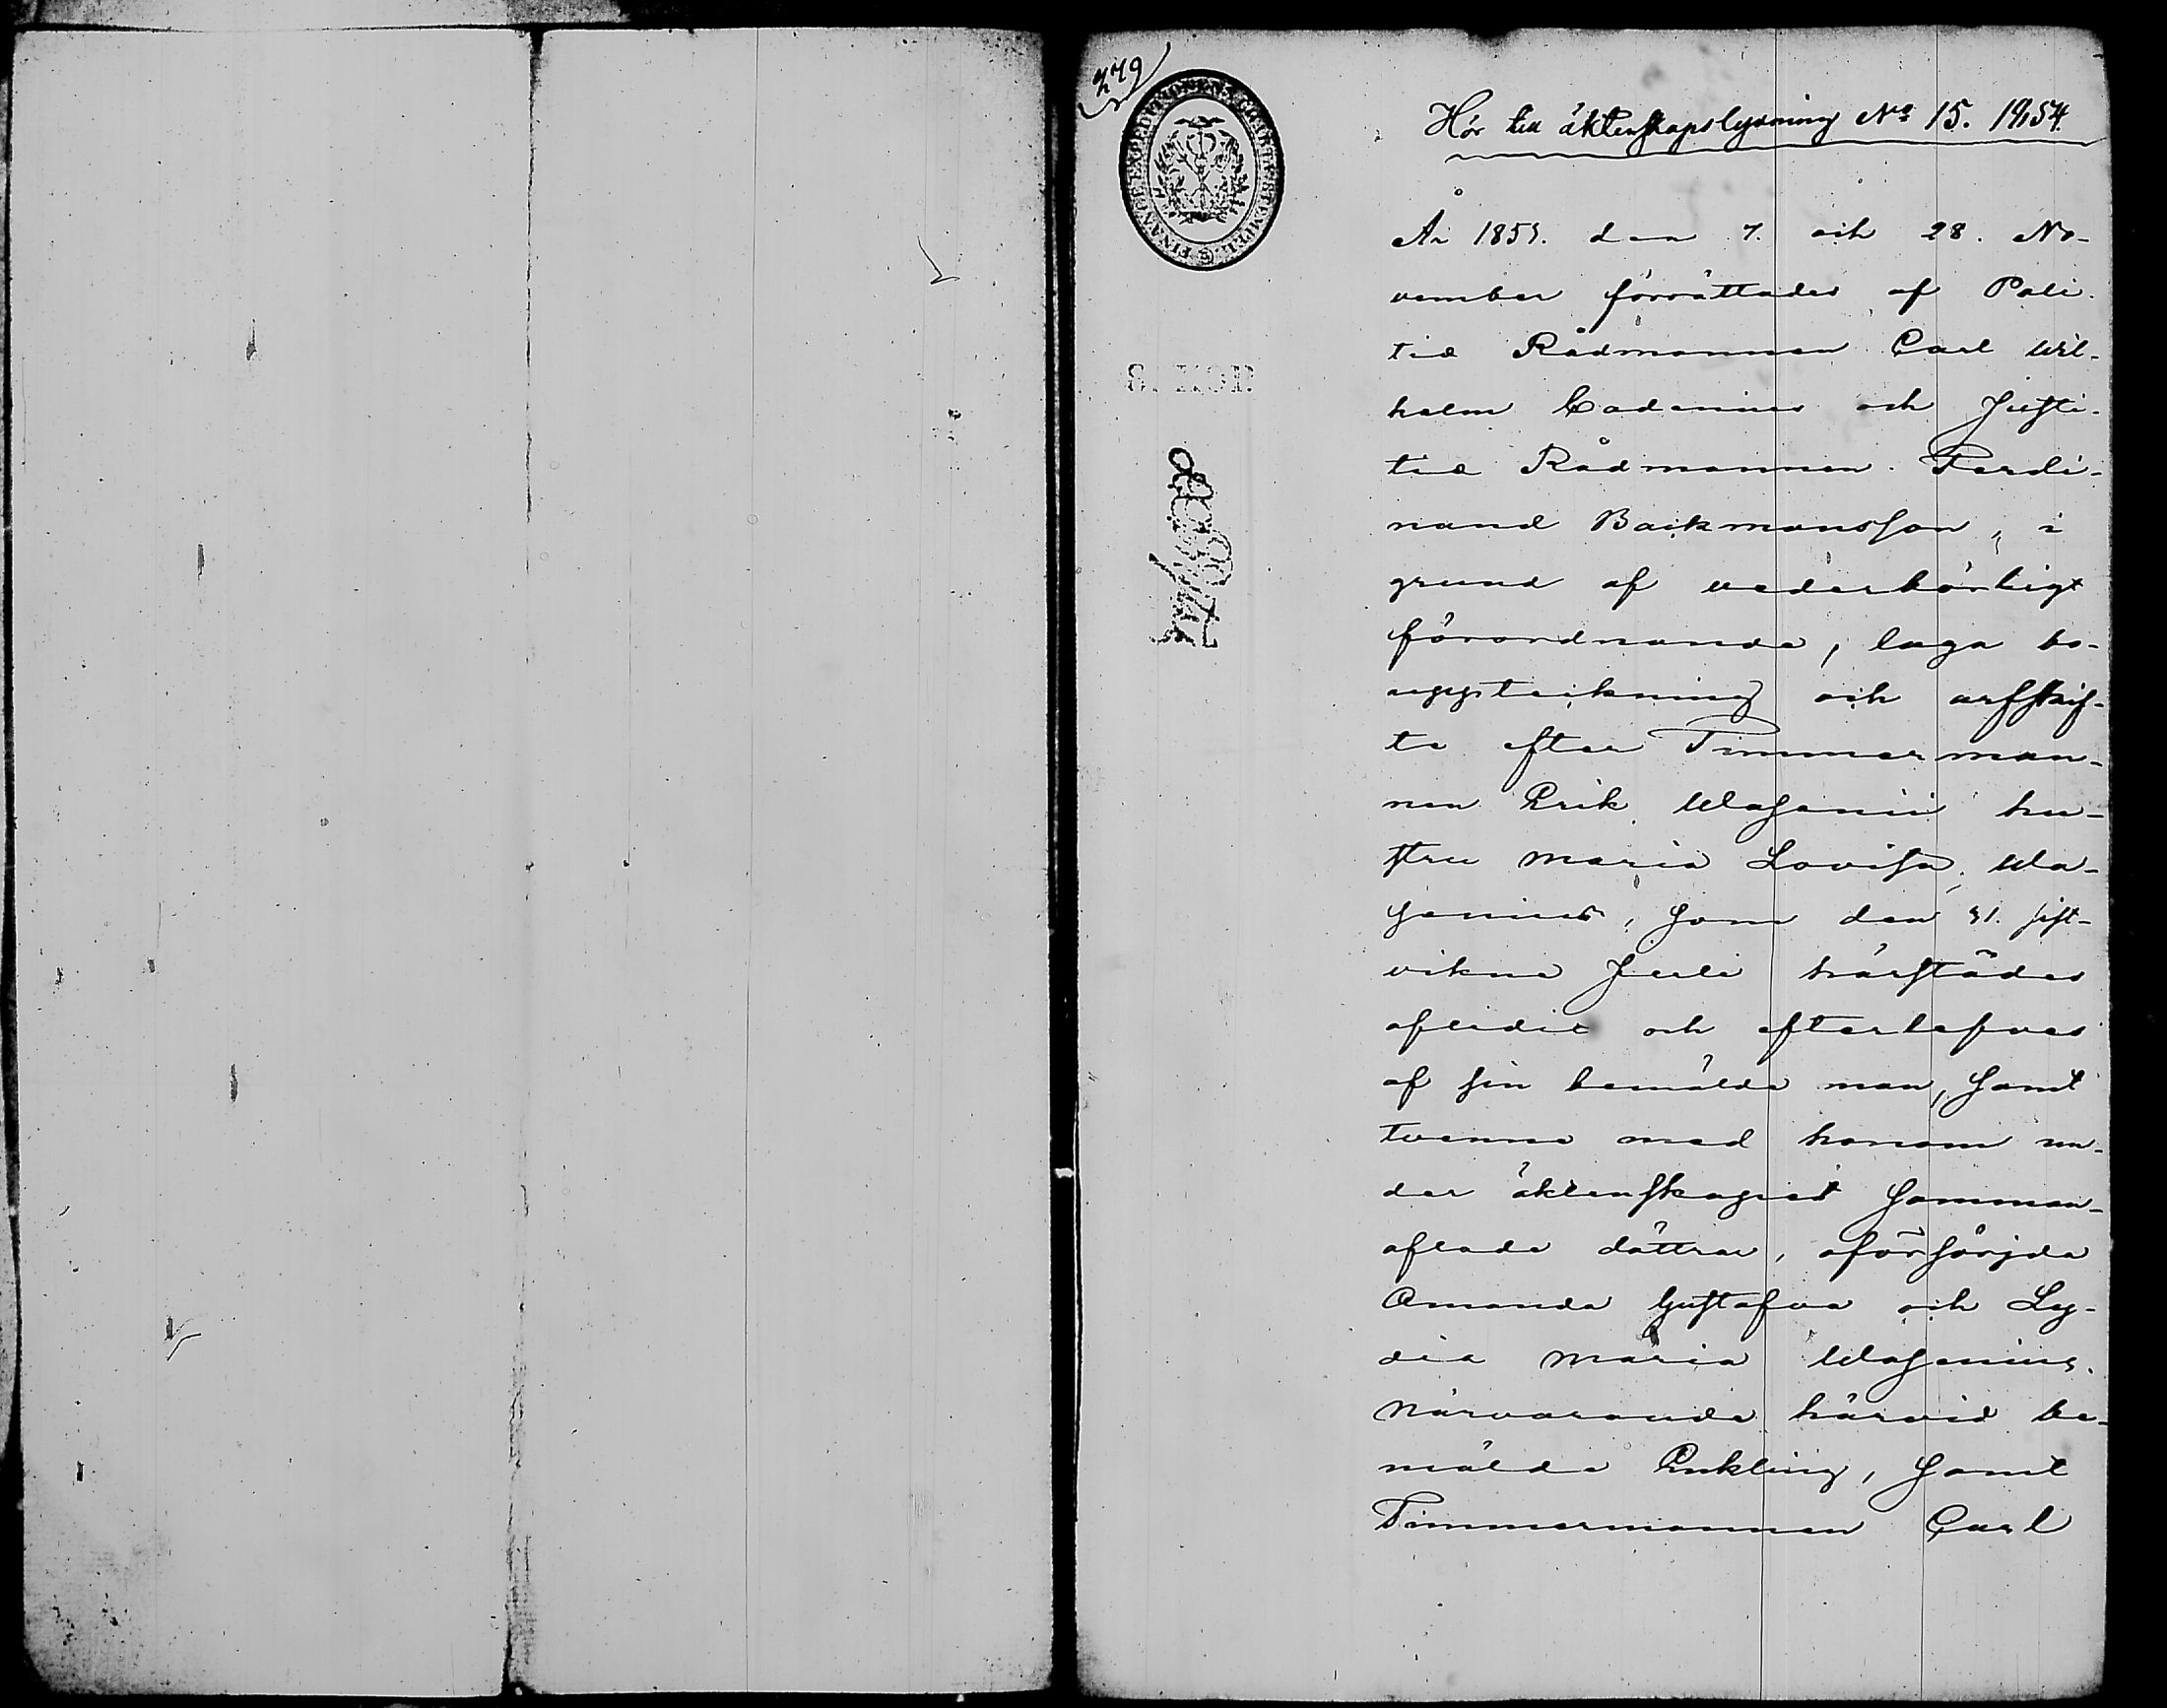 279
FINANCE EXPEDITIONENS CHARTÆ STEMPEL
8. KOP.
Hör till äktenskapslysning No 15. 1954.
År 1853. den 7. och 28. No-
vember förrättades af Poli-
tie Rådmannen Carl Wil-
helm Cadenius och Justi-
tie Rådmannen Ferdi-
nand Backmansson, i
grund af vederbörligt
förordnande, laga bo-
uppteckning och arfskif-
te efter Timmerman-
nen Erik Wasenii hu-
stru Maria Lovisa Wa-
senius, som den 31. sist-
vikne Juli härstädes
aflidit och efterlefves
af sin bemälde man, samt
tvenne med honom un-
der äktenskapet samman-
aflade döttrar, oförsörjda
Amanda Gustafva och Ly-
dia Maria Wasenius.
Närvarande härvid be-
mälde Enkling, samt
Timmermannen Carl